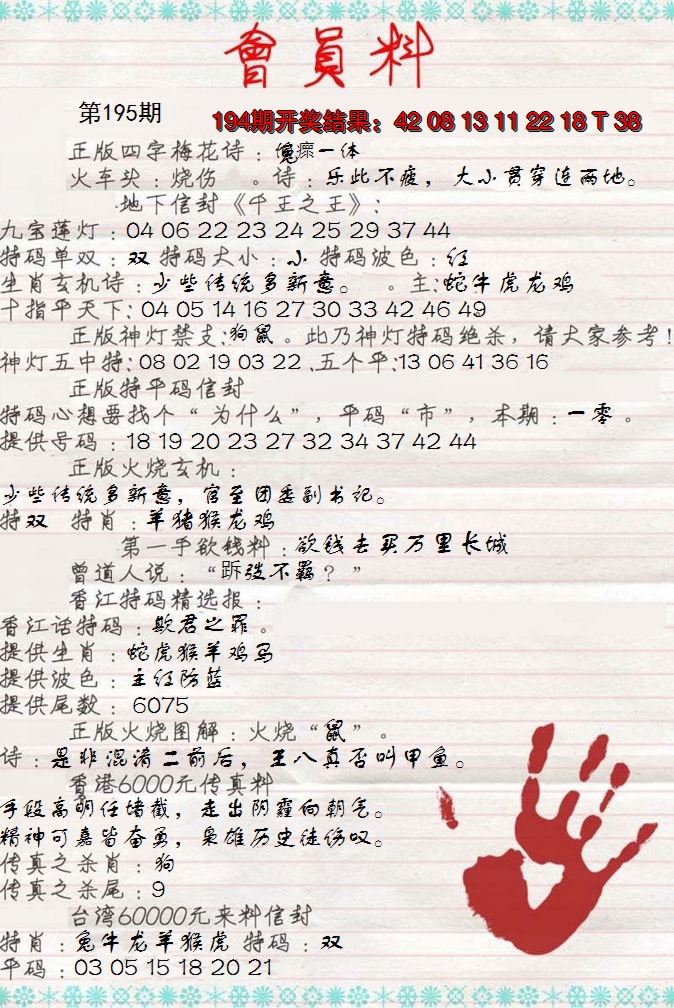 會員料
第195期
194期开奖结果：42 08 13 11 22 18 T 38
正版四字梅花诗：瘝一体
火车头：烧伤 。诗：乐此不疲，大小贯穿连两地。
地下信封《千王之王》：
九宝莲灯：04 06 22 23 24 25 29 37 44
特码单双：双 特码大小：小 特码波色：红
生肖玄机诗：少些传统多新意。 。主：蛇牛虎龙鸡
十指平天下：04 05 14 16 27 30 33 42 46 49
正版神灯禁支：狗鼠。此乃神灯特码绝杀，请大家参考！
神灯五中特：08 02 19 03 22 .五个平：13 06 41 36 16
正版特平码信封
特码心想要找个“为什么”，平码“市”，本期：一零。
提供号码：18 19 20 23 27 32 34 37 42 44
正版火烧玄机：
少些传统多新意，官至团委副书记。
特双 特肖：羊猪猴龙鸡
第一手欲钱料：欲钱去买万里长城
曾道人说：“跅弢不羁？”
香江特码精选报：
香江话特码：欺君之罪。
提供生肖：蛇虎猴羊鸡马
提供波色：主红防蓝
提供尾数：6075
正版火烧图解：火烧“鼠”。
诗：是非混淆二前后，王八真否叫甲鱼。
香港6000元传真料
手段高明任堵截，走出阴霾向朝气。
精神可嘉皆奋勇，枭雄历史徒伤叹。
传真之杀肖：狗
传真之杀尾：9
台湾60000元来料信封
特肖：兔牛龙羊猴虎 特码：双
平码：03 05 15 18 20 21